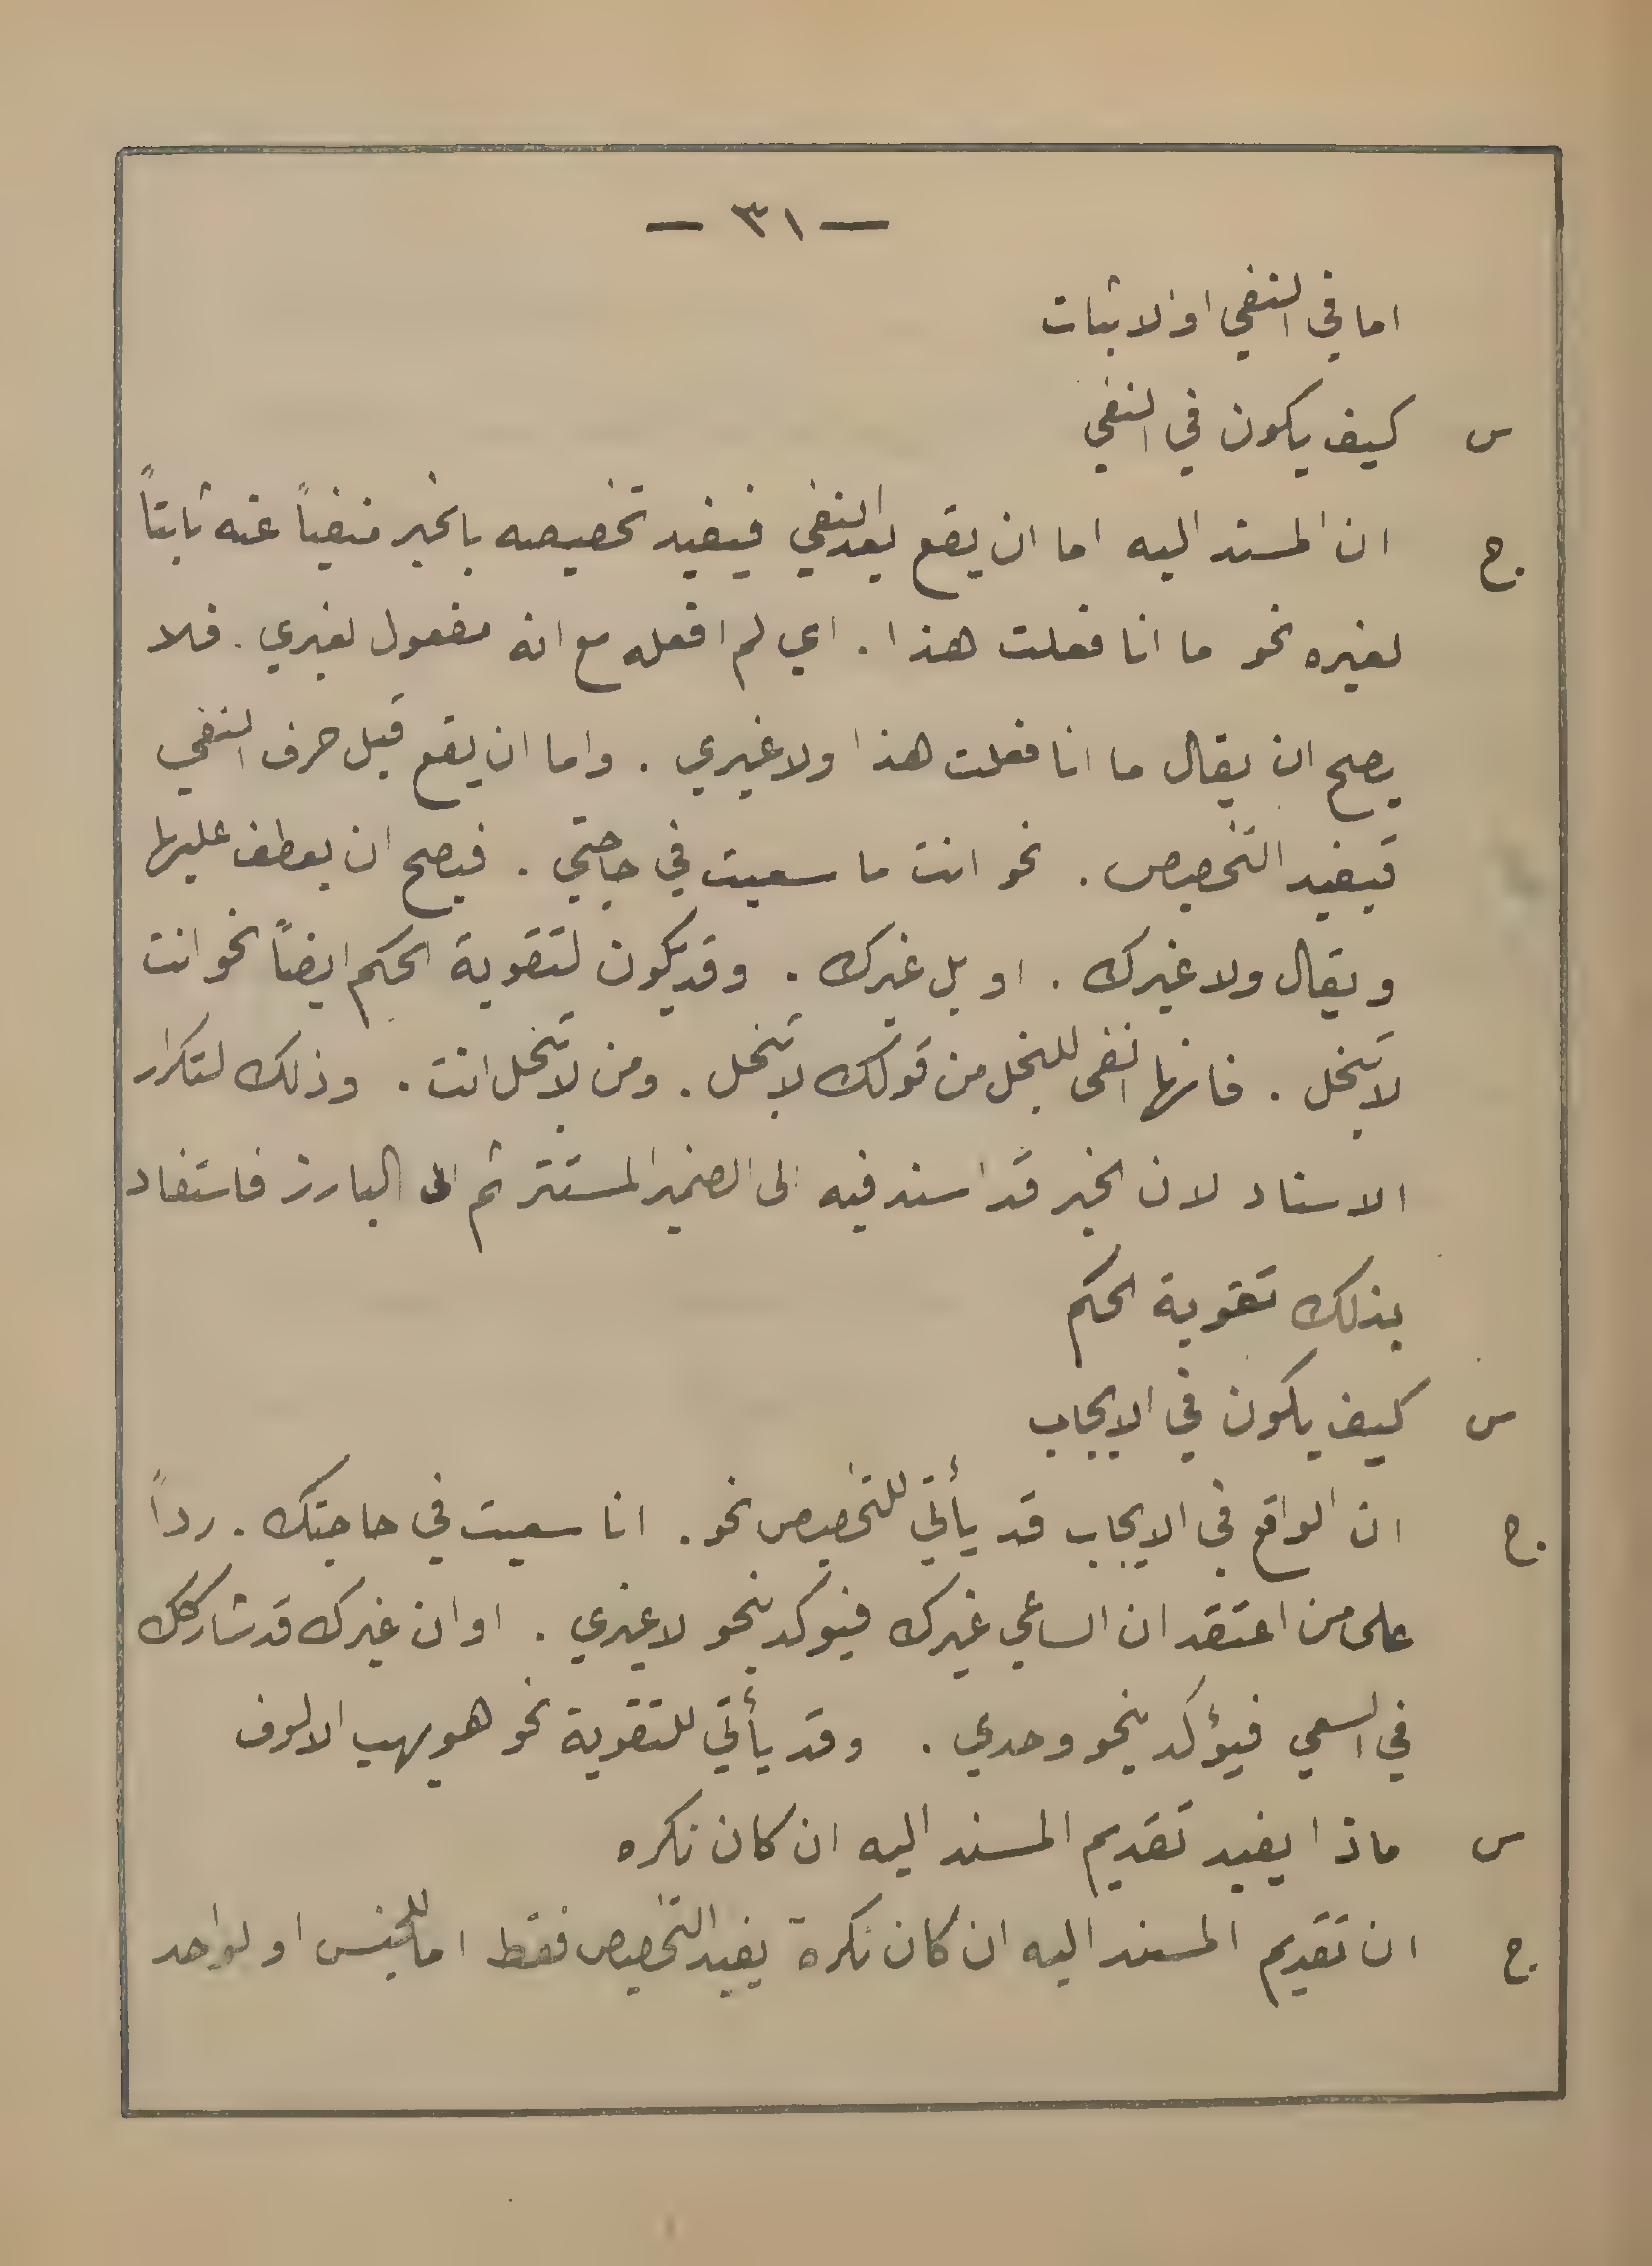 — ٣١ —
اما في النفي او الاثبات
س كيف يكون في النفي
ج. ان المسند اليه اما ان يقع بعد النفي فيفيد تخصيصه بالخبر منفياً عنه ثابتاً
لغيره نحو ما انا فعلت هذا . اي لم افعله مع انه مفعول لغيري . فلا
يصح ان يقال ما انا فعلت هذا ولا غيري . واما ان يقع قبل حرف النفي
فيفيد التخصيص . نحو انت ما سعيت في حاجتي . فيصح ان يعطف عليها
ويقال ولا غيرك . او بل غيرك . وقد يكون لتقوية الحكم ايضاً نحو انت
لا تبخل . فانها انفى للبخل من قولك لا تبخل . ومن لا تبخل انت . وذلك لتكرار
الاسناد لان الخبر قد اسند فيه الى الضمير المستتر ثم الى البارز فاستفاد
بذلك تقوية الحكم
س كيف يكون في الايجاب
ج. ان الواقع في الايجاب قد يأتي للتخصيص نحو . انا سعيت في حاجتك . رداً
على من اعتقد ان الساعي غيرك فيوكد بنحو لا غيري . او ان غيرك قد شاركك
في السعي فيؤكد بنحو وحدي . وقد يأتي للتقوية نحو هو يهب الالوف
س ماذا يفيد تقديم المسند اليه ان كان نكره
ج. ان تقديم المسند اليه ان كان نكرة يفيد التخصيص فقط اما للجنس او لواحد